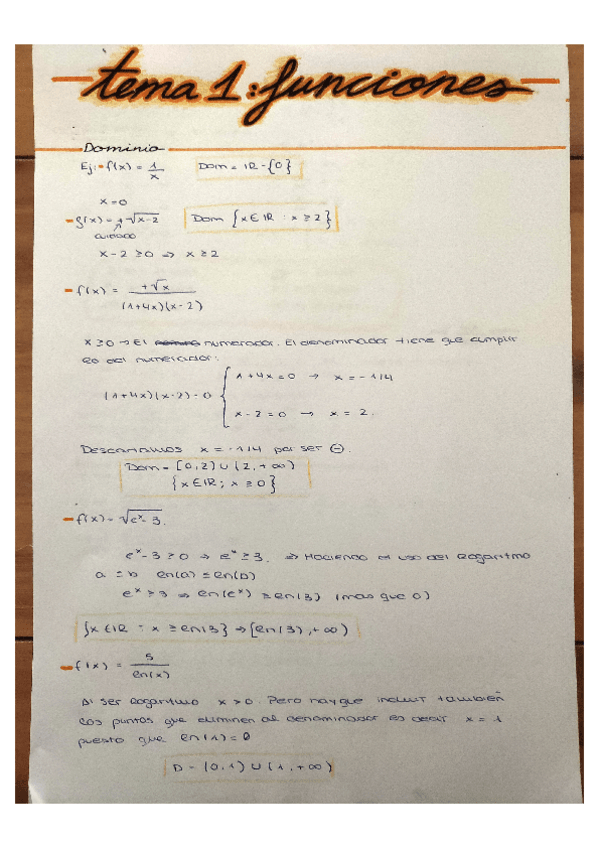 tema 1: funciones
Dominio
Ej: - f(x) = 1/x Dom = IR - {0}
x = 0
- g(x) = +√x-2 Dom {x ∈ IR : x ≥ 2}
cuidado
x - 2 ≥ 0 ⇒ x ≥ 2
- f(x) = +√x / (1+4x)(x-2)
x ≥ 0 → El numerador. El denominador tiene que cumplir
lo del numerador:
(1+4x)(x-2) = 0 { 1+4x = 0 → x = -1/4
x - 2 = 0 → x = 2.
Descartamos x = -1/4 por ser ⊖.
Dom = [0,2) ∪ (2, +∞)
{x ∈ IR ; x ≥ 0}
- f(x) = √e^x - 3.
e^x - 3 ≥ 0 ⇒ e^x ≥ 3. ⇒ Haciendo el uso del logaritmo
a = b ln(a) = ln(b)
e^x ≥ 3 ⇒ ln(e^x) ≥ ln(3) (mas que 0)
{x ∈ IR : x ≥ ln(3)} ⇒ [ln(3), +∞)
- f(x) = 5 / ln(x)
Al ser logaritmo x > 0. Pero hay que incluir también
los puntos que eliminen al denominador es decir x = 1
puesto que ln(1) = 0
D = (0,1) ∪ (1, +∞)